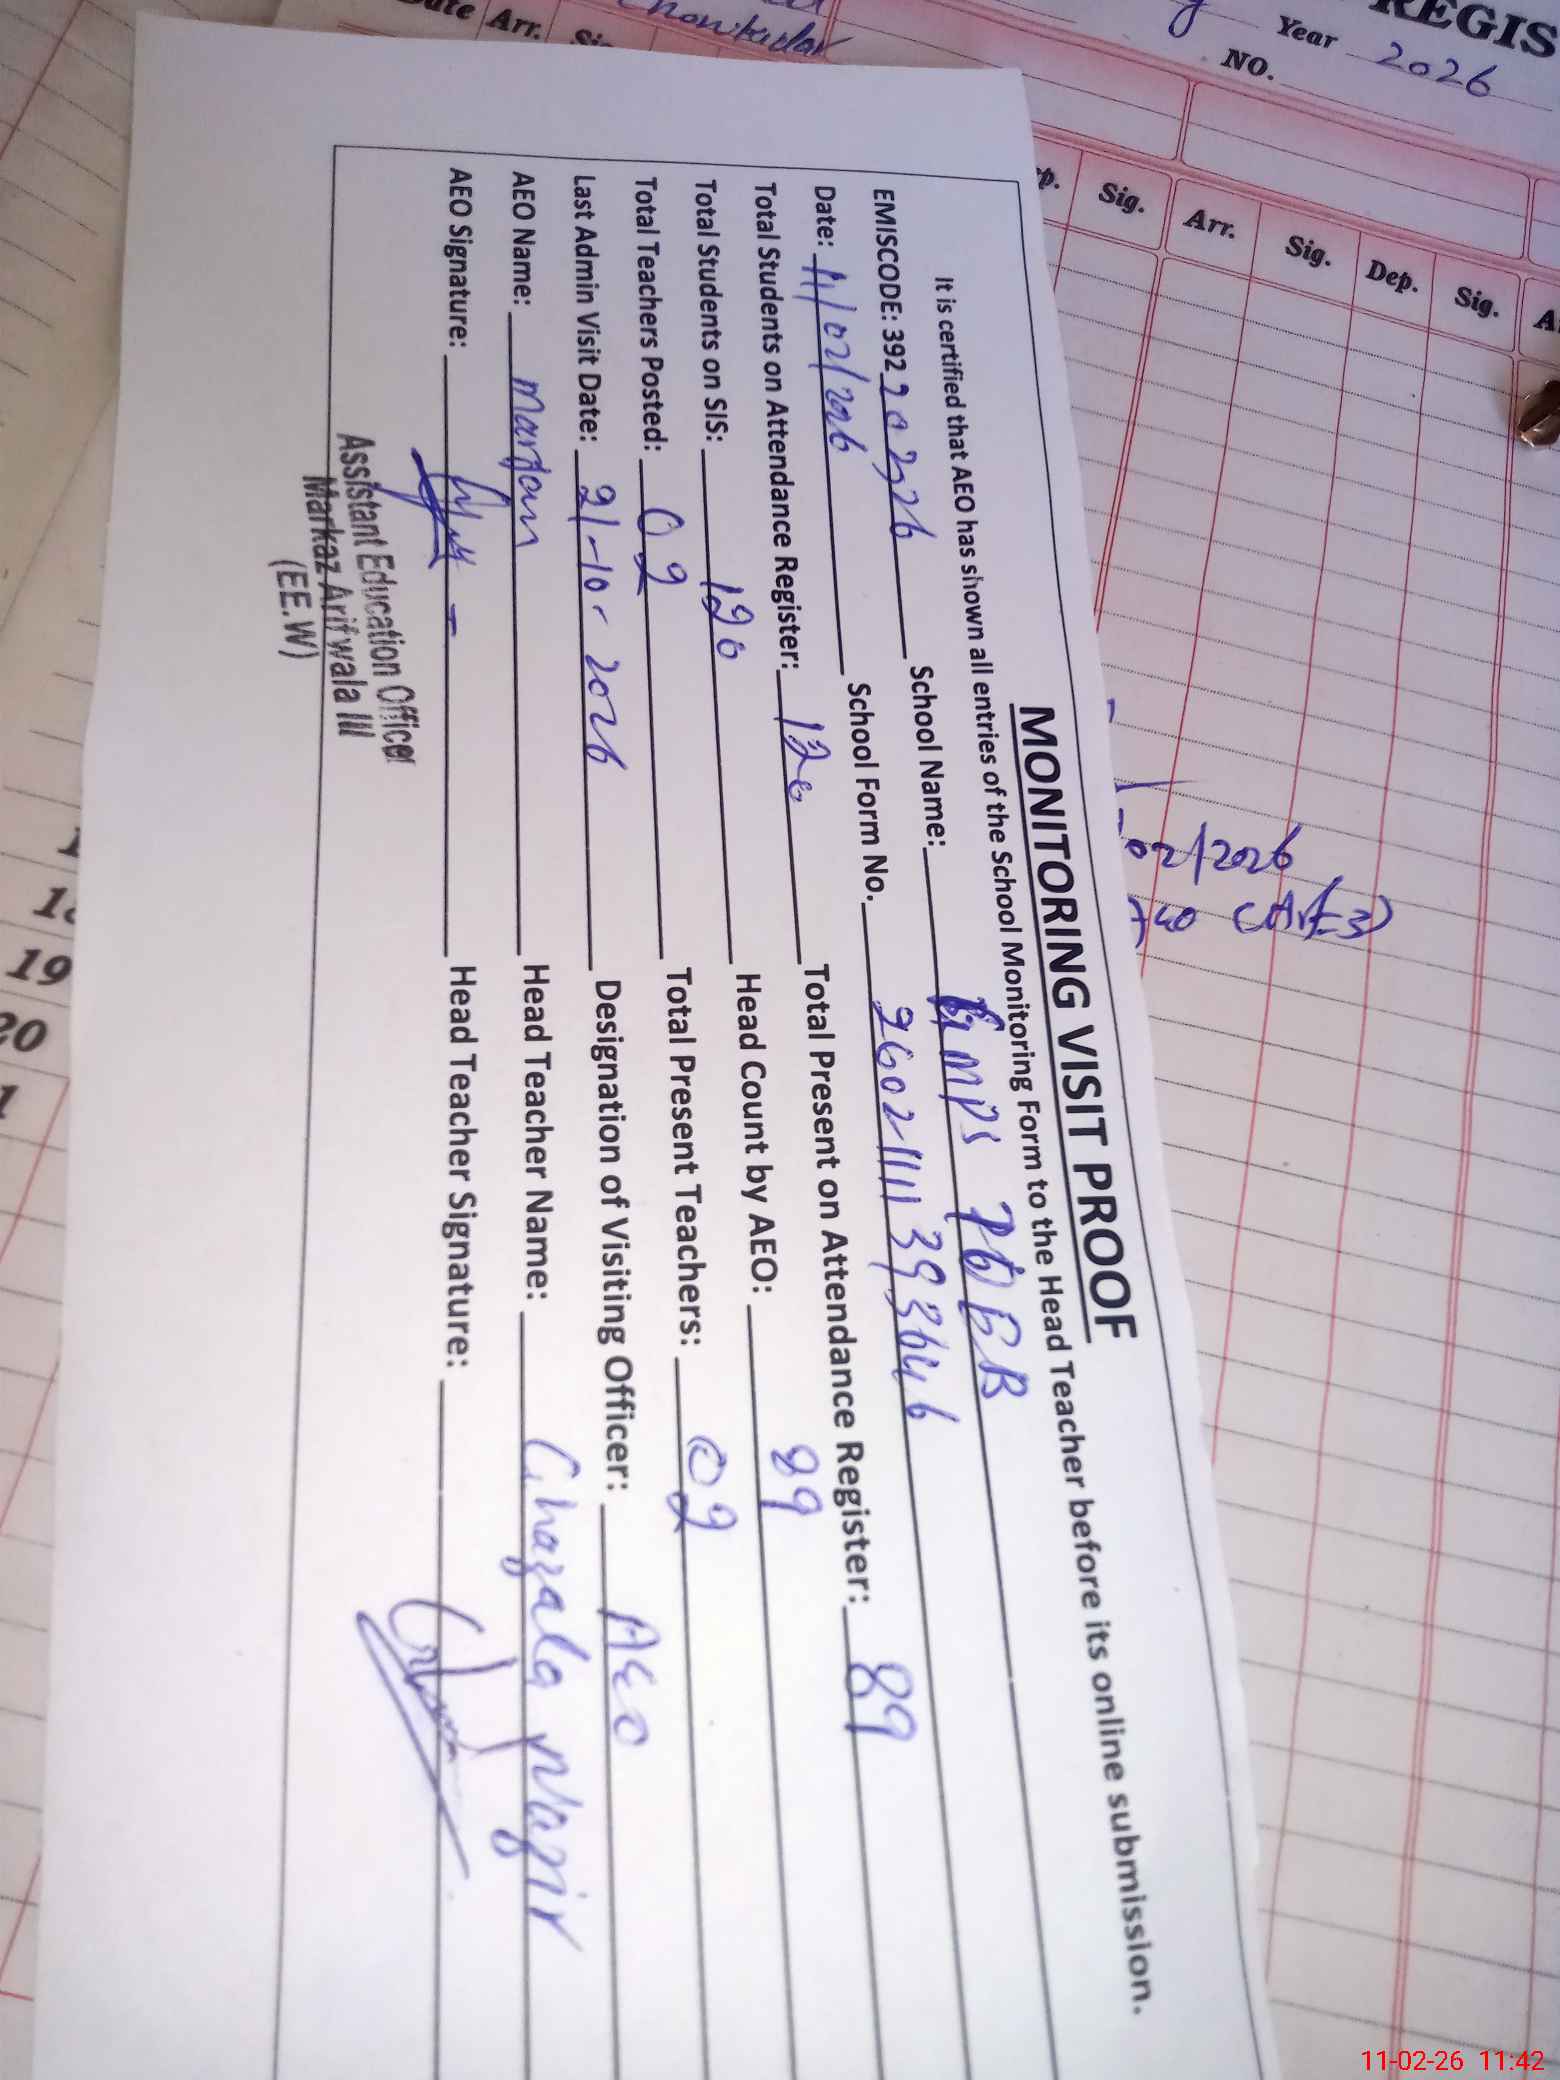 Date Arr. Sig.
Chowkidar
REGIS
Year 2026
NO.
Sig. Arr. Sig. Dep. Sig.
MONITORING VISIT PROOF
It is certified that AEO has shown all entries of the School Monitoring Form to the Head Teacher before its online submission.
EMISCODE: 39220226 School Name: GMPS 76 EB
Date: 11/02/2026 School Form No. 26021111393646
Total Students on Attendance Register: 120 Total Present on Attendance Register: 89
Total Students on SIS: 120 Head Count by AEO: 89
Total Teachers Posted: 02 Total Present Teachers: 02
Last Admin Visit Date: 21-10-2026 Designation of Visiting Officer: AEO
AEO Name: Head Teacher Name: Ghazala Nazir
AEO Signature: Head Teacher Signature:
Assistant Education Officer
Markaz Arifwala III
(EE.W)
02/2026
19
20
11-02-26 11:42